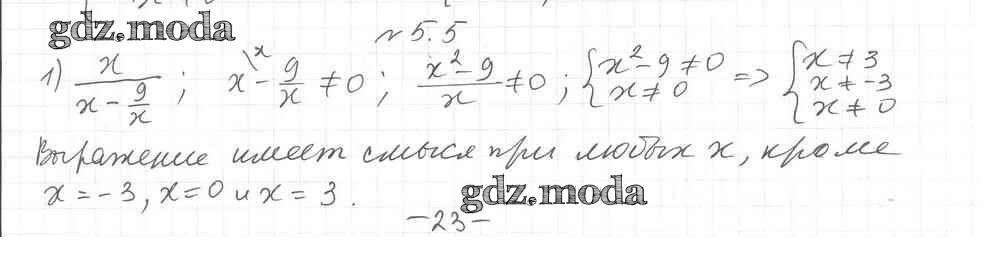 gdz.moda
№ 5.5
1) x / (x - 9/x) ; x\x - 9/x ≠ 0 ; (x² - 9)/x ≠ 0 ; { x² - 9 ≠ 0 x ≠ 0 => { x ≠ 3 x ≠ -3 x ≠ 0
Выражение имеет смысл при любых x, кроме
x = -3, x = 0 и x = 3.
gdz.moda
-23-